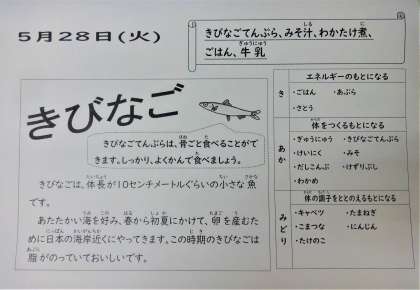 5月28日(火)
きびなごてんぷら、みそ汁、わかたけ煮、
ごはん、牛乳
きびなご
きびなごてんぷらは、骨ごと食べることがで
きます。しっかり、よくかんで食べましょう。
きびなごは、体長が10センチメートルぐらいの小さな魚
です。
あたたかい海を好み、春から初夏にかけて、卵を産むた
めに日本の海岸近くにやってきます。この時期のきびなごは
脂がのっていておいしいです。
エネルギーのもとになる
き
・ごはん ・あぶら
・さとう
体をつくるもとになる
あか
・ぎゅうにゅう ・きびなごてんぷら
・けいにく ・みそ
・だしこんぶ ・けずりぶし
・わかめ
体の調子をととのえるもとになる
みどり
・キャベツ ・たまねぎ
・こまつな ・にんじん
・たけのこ